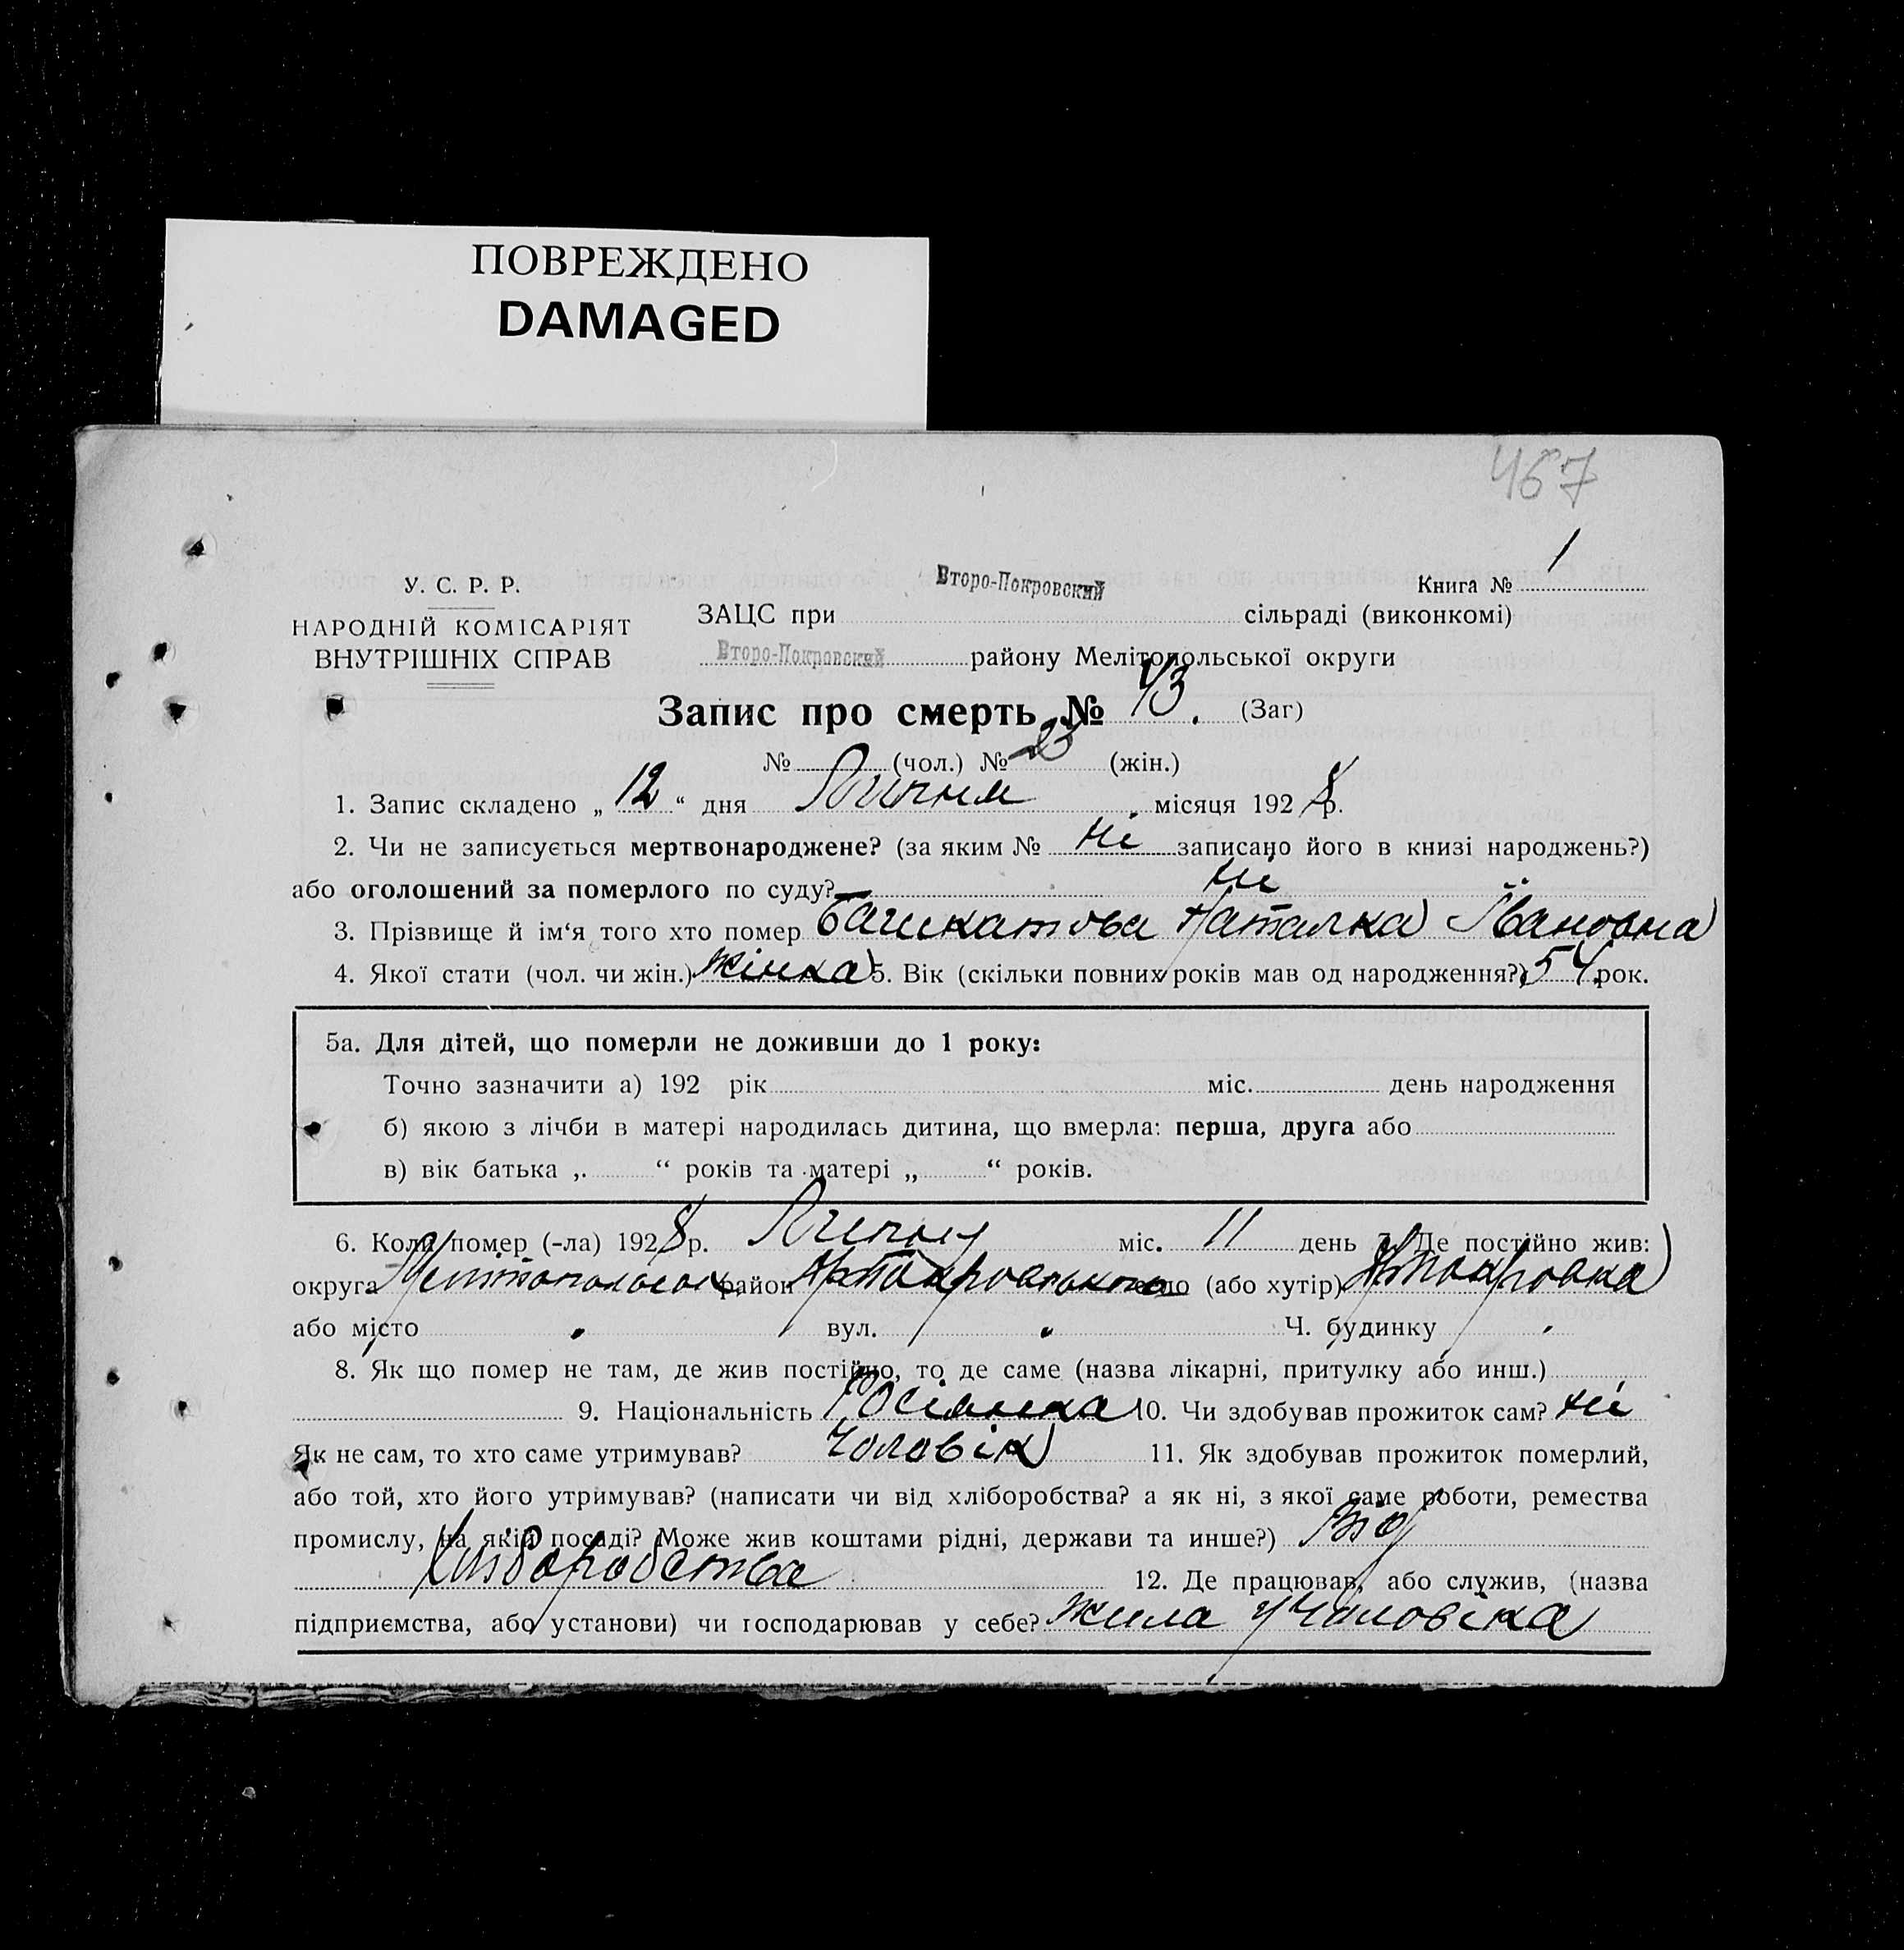 ПОВРЕЖДЕНО
DAMAGED
467
Книга № 1
У. С. Р. Р.
НАРОДНІЙ КОМІСАРІЯТ
ВНУТРІШНІХ СПРАВ
ЗАЦС при Второ-Покровский сільраді (виконкомі)
Второ-Покровский району Мелітопольської округи
Запис про смерть № 43. (Заг)
№ (чол.) № 23 (жін.)
1. Запис складено „ 12 “ дня Липня місяця 1928 р.
2. Чи не записується мертвонароджене? (за яким № ні записано його в книзі народжень?)
або оголошений за померлого по суду? ні
3. Прізвище й ім‘я того хто помер Башкатова Наталка Івановна
4. Якої стати (чол. чи жін.) жінка 5. Вік (скільки повних років мав од народження?) 54 рок.
5а. Для дітей, що померли не доживши до 1 року:
Точно зазначити а) 192 рік міс. день народження
б) якою з лічби в матері народилась дитина, що вмерла: перша, друга або
в) вік батька „ “ років та матері „ “ років.
6. Коли помер (-ла) 1928 р. Липня міс. 11 день 7. Де постійно жив:
округа район село (або хутір)
або місто " вул. " Ч. будинку "
8. Як що помер не там, де жив постійно, то де саме (назва лікарні, притулку або инш.)
9. Національність Росіянка 10. Чи здобував прожиток сам? ні
Як не сам, то хто саме утримував? Чоловік 11. Як здобував прожиток померлий,
або той, хто його утримував? (написати чи від хліборобства? а як ні, з якої саме роботи, ремества
промислу, на якій посаді? Може жив коштами рідні, держави та инше?) Від
хліборобства 12. Де працював, або служив, (назва
підприємства, або установи) чи господарював у себе? жила у чоловіка